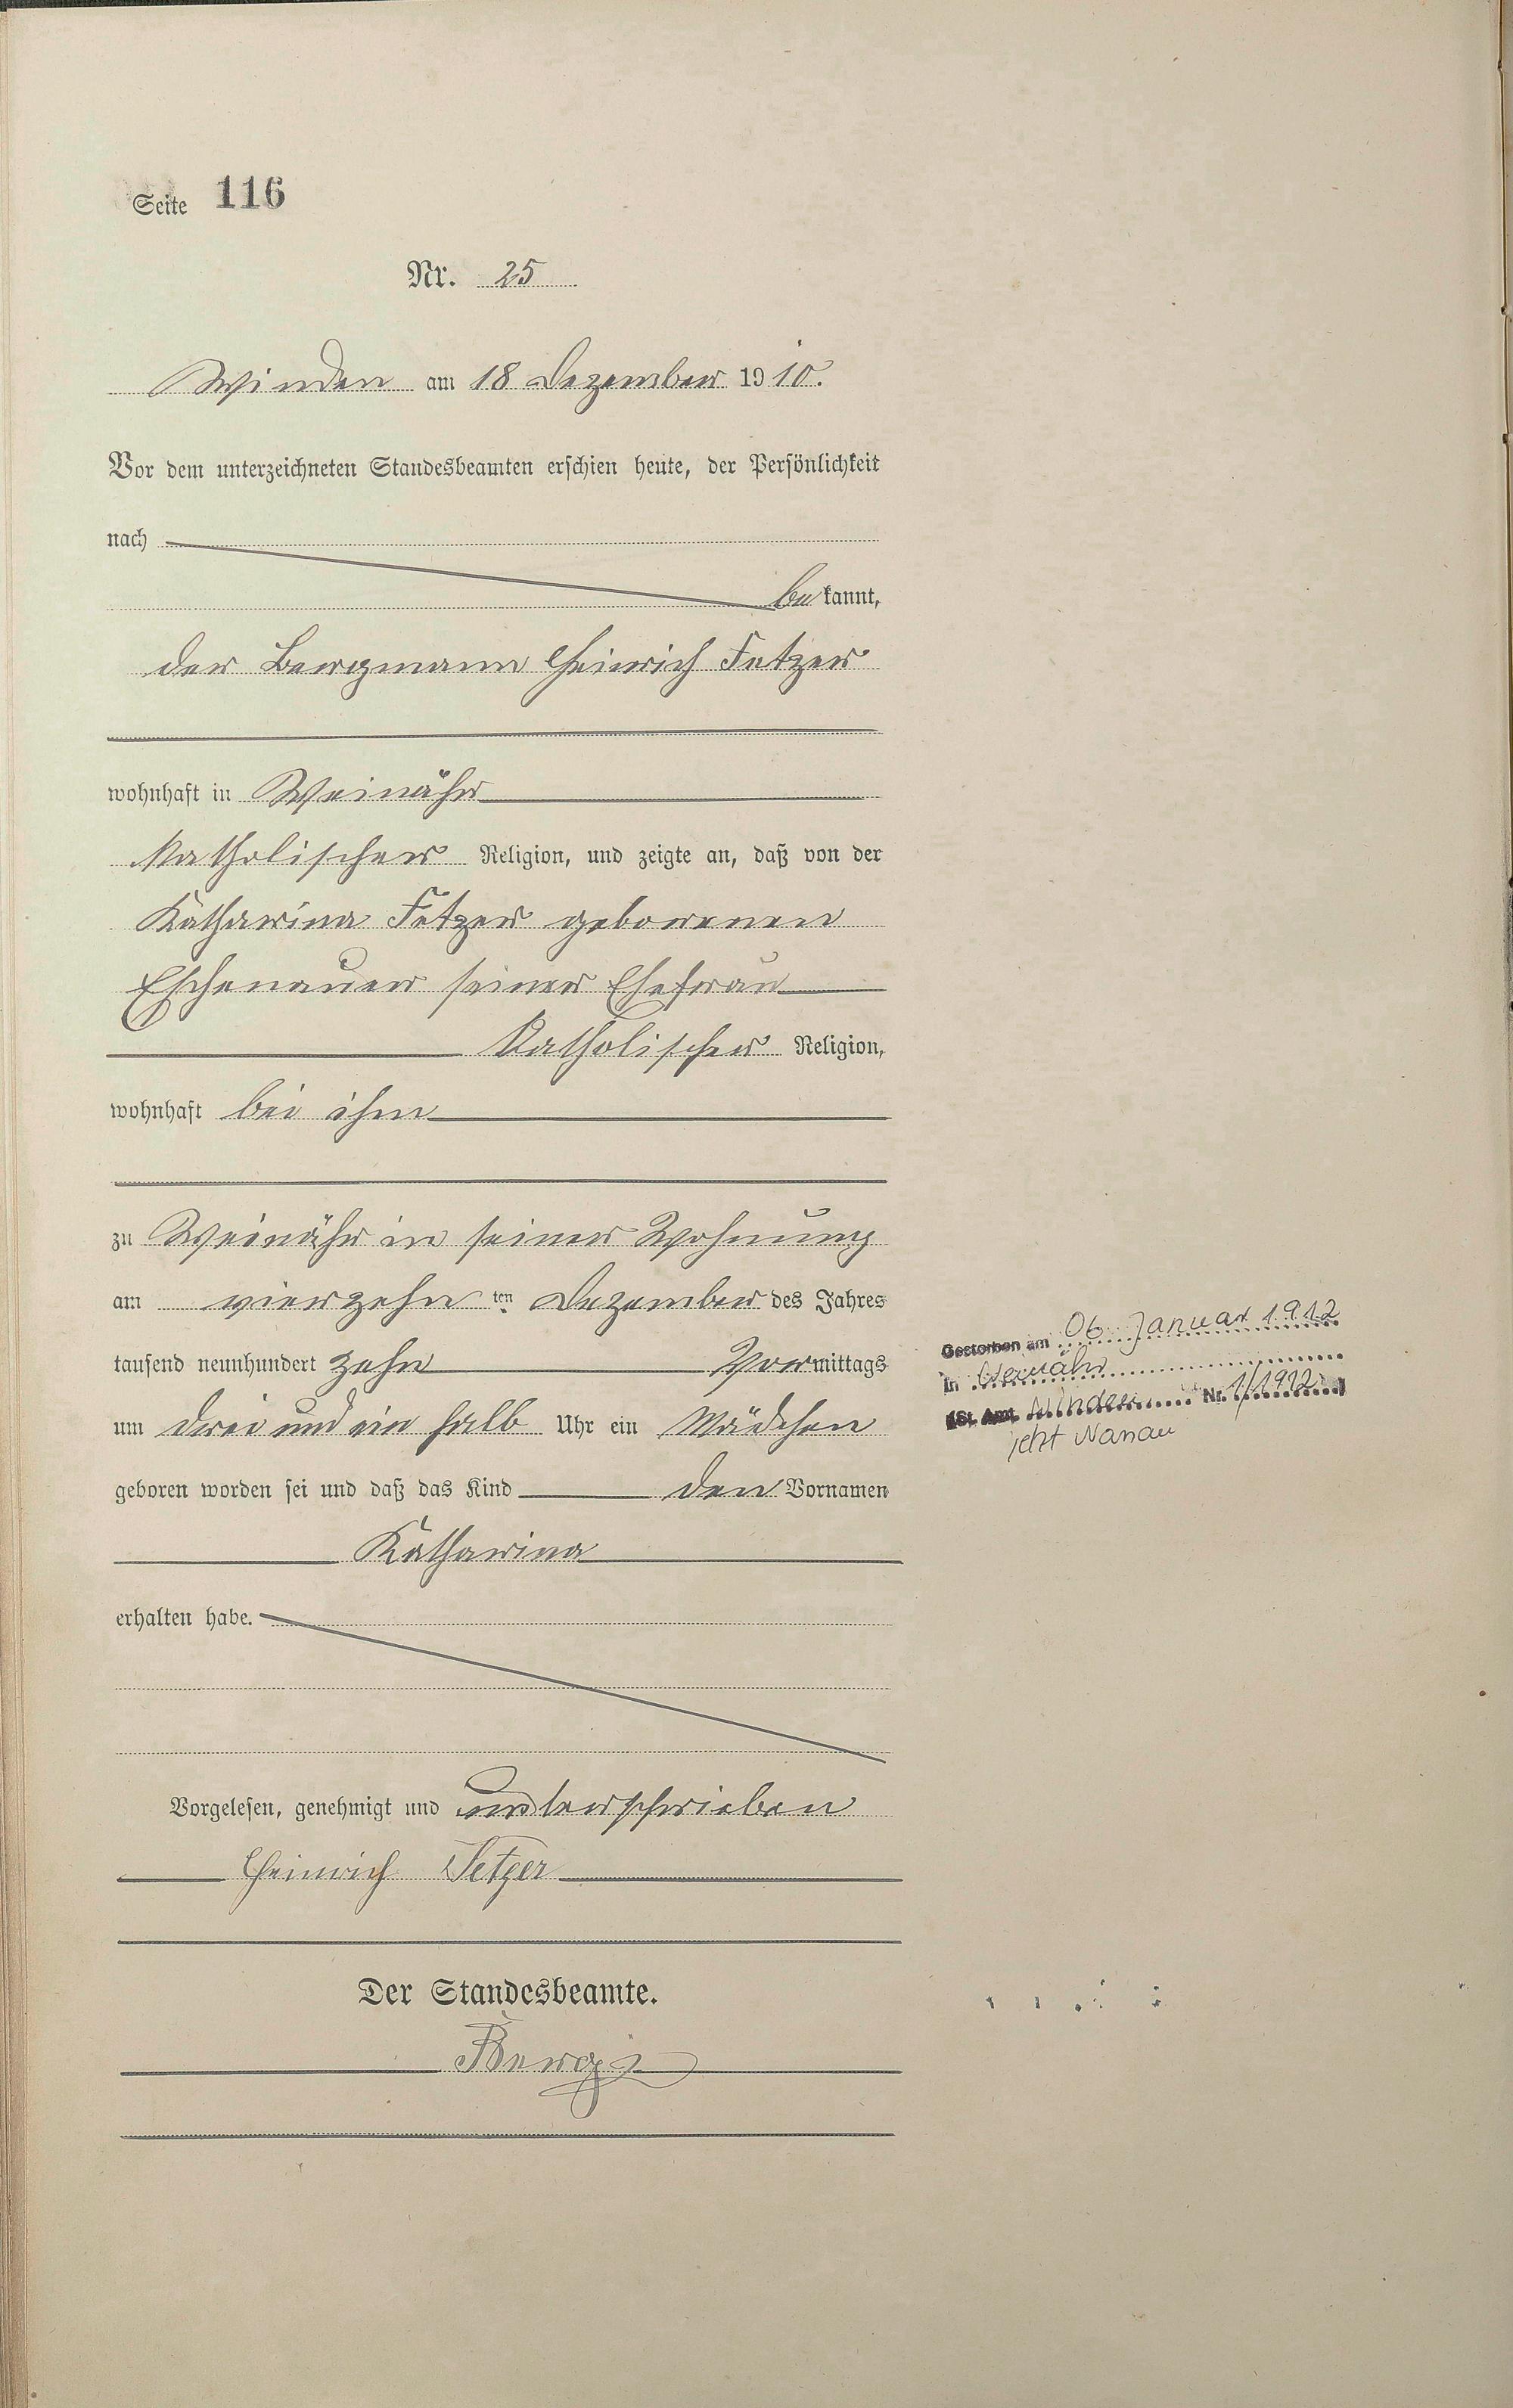 Seite 116
Nr. 25
Winden am 18 Dezember 1910.
Vor dem unterzeichneten Standesbeamten erschien heute, der Persönlichkeit
nach
be kannt,
der Bergmann Heinrich Fetzer
wohnhaft in Weinähr
katholischer Religion, und zeigte an, daß von der
Katharina Fetzer geborenen
Eschenauer seiner Ehefrau
katholischer Religion,
wohnhaft bei ihm
zu Weinähr in seiner Wohnung
am vierzehn ten Dezember des Jahres
tausend neunhundert zehn Vormittags
um drei und ein halb Uhr ein Mädchen
geboren worden sei und daß das Kind den Vornamen
Katharina
erhalten habe.
Vorgelesen, genehmigt und unterschrieben
Heinrich Fetzer
Der Standesbeamte.
Gestorben am 06. Januar 1912
in Weinähr
St. Amt Winden Nr. 1/1912
jetzt Nassau